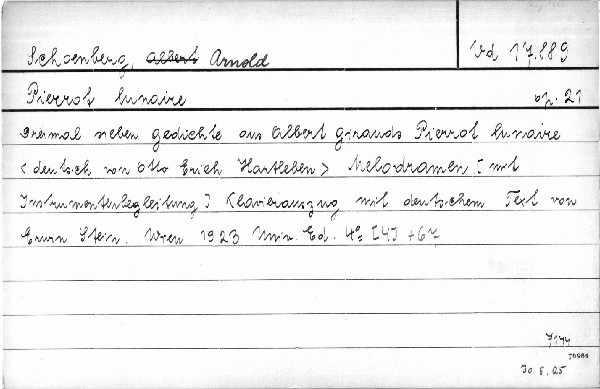 Schoenberg, Albert Arnold
Vd 17.889
Pierrot lunaire op. 21
Dreimal sieben Gedichte aus Albert Girauds Pierrot lunaire
<deutsch von Otto Erich Hartleben> Melodramen [mit
Instrumentenbegleitung] Klavierauszug mit deutschem Text von
Erwin Stein. Wien 1923 Univ. Ed. 4° [4] + 67
7144
70984
30.5.25